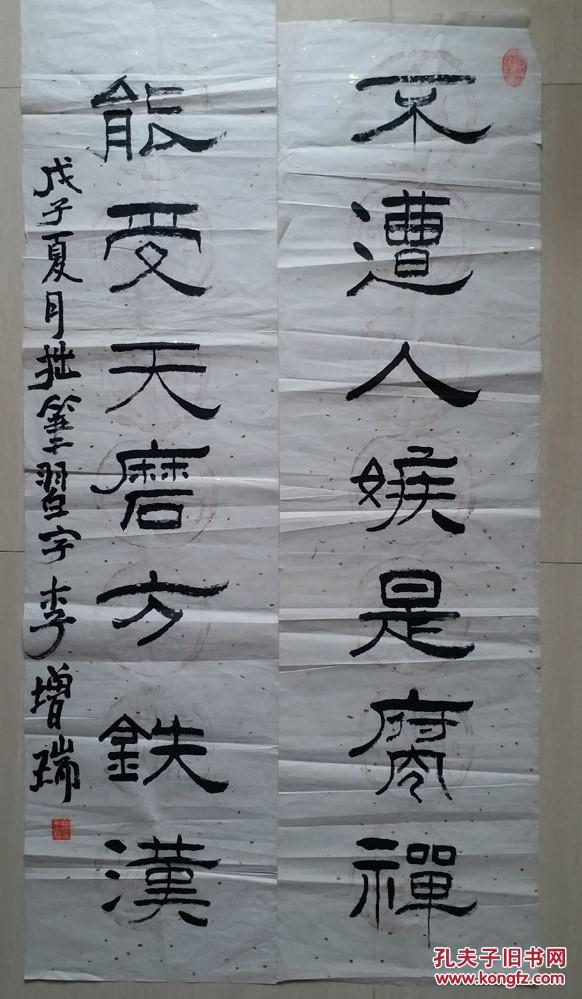 不遭人嫉是腐禪
能受天磨方鉄漢
戊子夏月拙筆習字李增瑞
孔夫子旧书网
www.kongfz.com